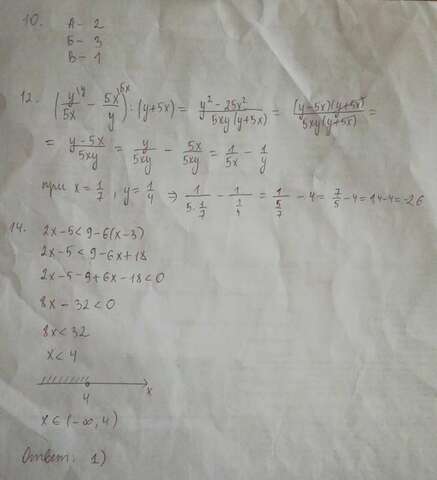 10. А - 2
Б - 3
В - 1
12. (y/5x - 5x/y) : (y+5x) = (y² - 25x²)/(5xy(y+5x)) = ((y-5x)(y+5x))/(5xy(y+5x)) =
= (y-5x)/5xy = y/5xy - 5x/5xy = 1/5x - 1/y
при x = 1/7, y = 1/4 ⇒ 1/(5·1/7) - 1/(1/4) = 1/(5/7) - 4 = 7/5 - 4 = 1,4 - 4 = -2,6
14. 2x-5<9-6(x-3)
2x-5<9-6x+18
2x-5-9+6x-18<0
8x-32<0
8x<32
x<4
4 x
x∈(-∞,4)
Ответ: 1)